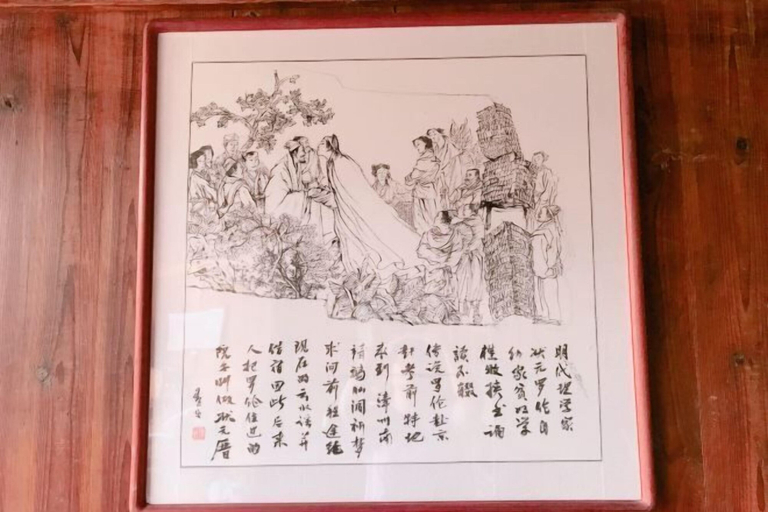 明代理学家
状元罗伦自
幼家贫好学
樵牧挟书诵
读不辍
传说罗伦赴京
赶考前特地
来到漳州南
靖鹅仙洞祈梦
求问前程途经
现在的云水谣并
借宿因此后来
人把罗伦住过的
院子叫做状元厝